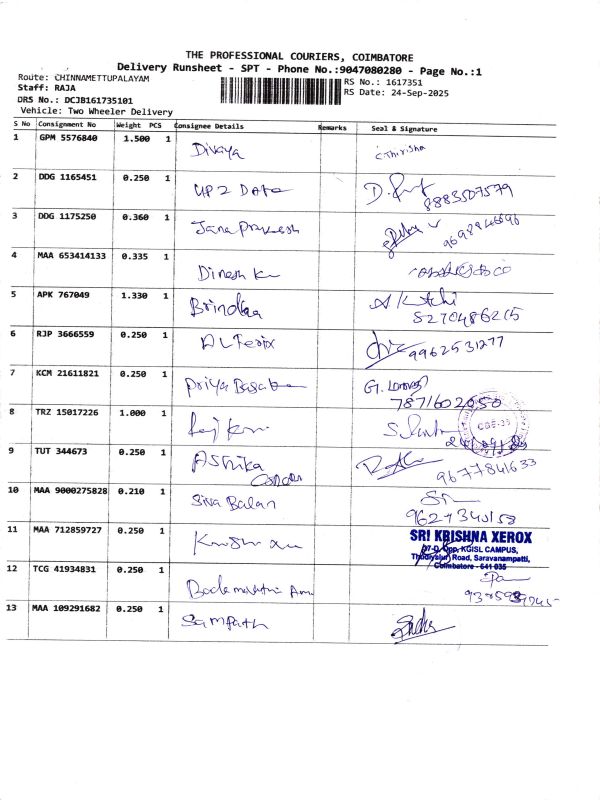 THE PROFESSIONAL COURIERS, COIMBATORE
Delivery Runsheet - SPT - Phone No.:9047080280 - Page No.:1
Route: CHINNAMETTUPALAYAM RS No.: 1617351
Staff: RAJA RS Date: 24-Sep-2025
DRS No.: DCJB161735101
Vehicle: Two Wheeler Delivery
S No Consignment No Weight PCS Consignee Details Remarks Seal & Signature
1 GPM 5576840 1.500 1 Divya
2 DDG 1165451 0.250 1 UP 2 Date 8883507579
3 DDG 1175250 0.360 1 Jana Prakash
4 MAA 653414133 0.335 1 Dinesh K
5 APK 767049 1.330 1 Brindha
6 RJP 3666559 0.250 1 9962531277
7 KCM 21611821 0.250 1 Priya 7871602050
8 TRZ 15017226 1.000 1 CBE-35
9 TUT 344673 0.250 1 Ashika 9677841633
10 MAA 9000275828 0.210 1 Siva Balan
11 MAA 712859727 0.250 1
SRI KRISHNA XEROX
Opp. KGISL CAMPUS,
Road, Saravanampatti,
Coimbatore - 641 035
12 TCG 41934831 0.250 1
13 MAA 109291682 0.250 1 Sampath